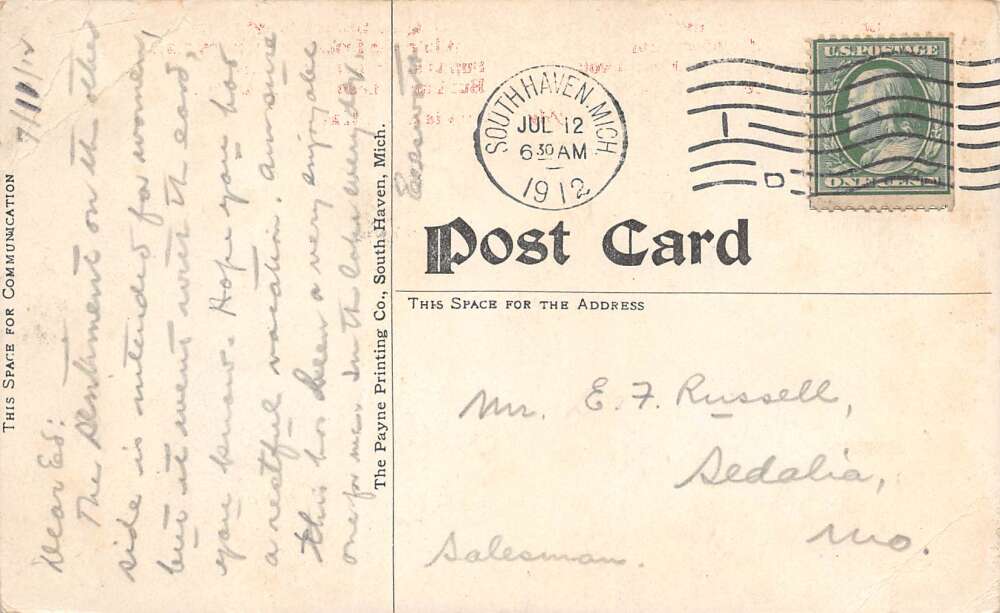 THIS SPACE FOR COMMUNICATION
7/11/12
Dear Ed:
The sentiment on the other
side is intended for women,
but it went with the card,
you know. Hope you had
a restful vacation. Am sure
this has been a very enjoyable
one for me. In the lake every day.
The Payne Printing Co., South Haven, Mich.
SOUTH HAVEN, MICH.
JUL 12
6 30 AM
1912
D
U.S. POSTAGE
ONE CENT
Post Card
THIS SPACE FOR THE ADDRESS
Mr. E. F. Russell,
Sedalia,
Mo.
Salesman.